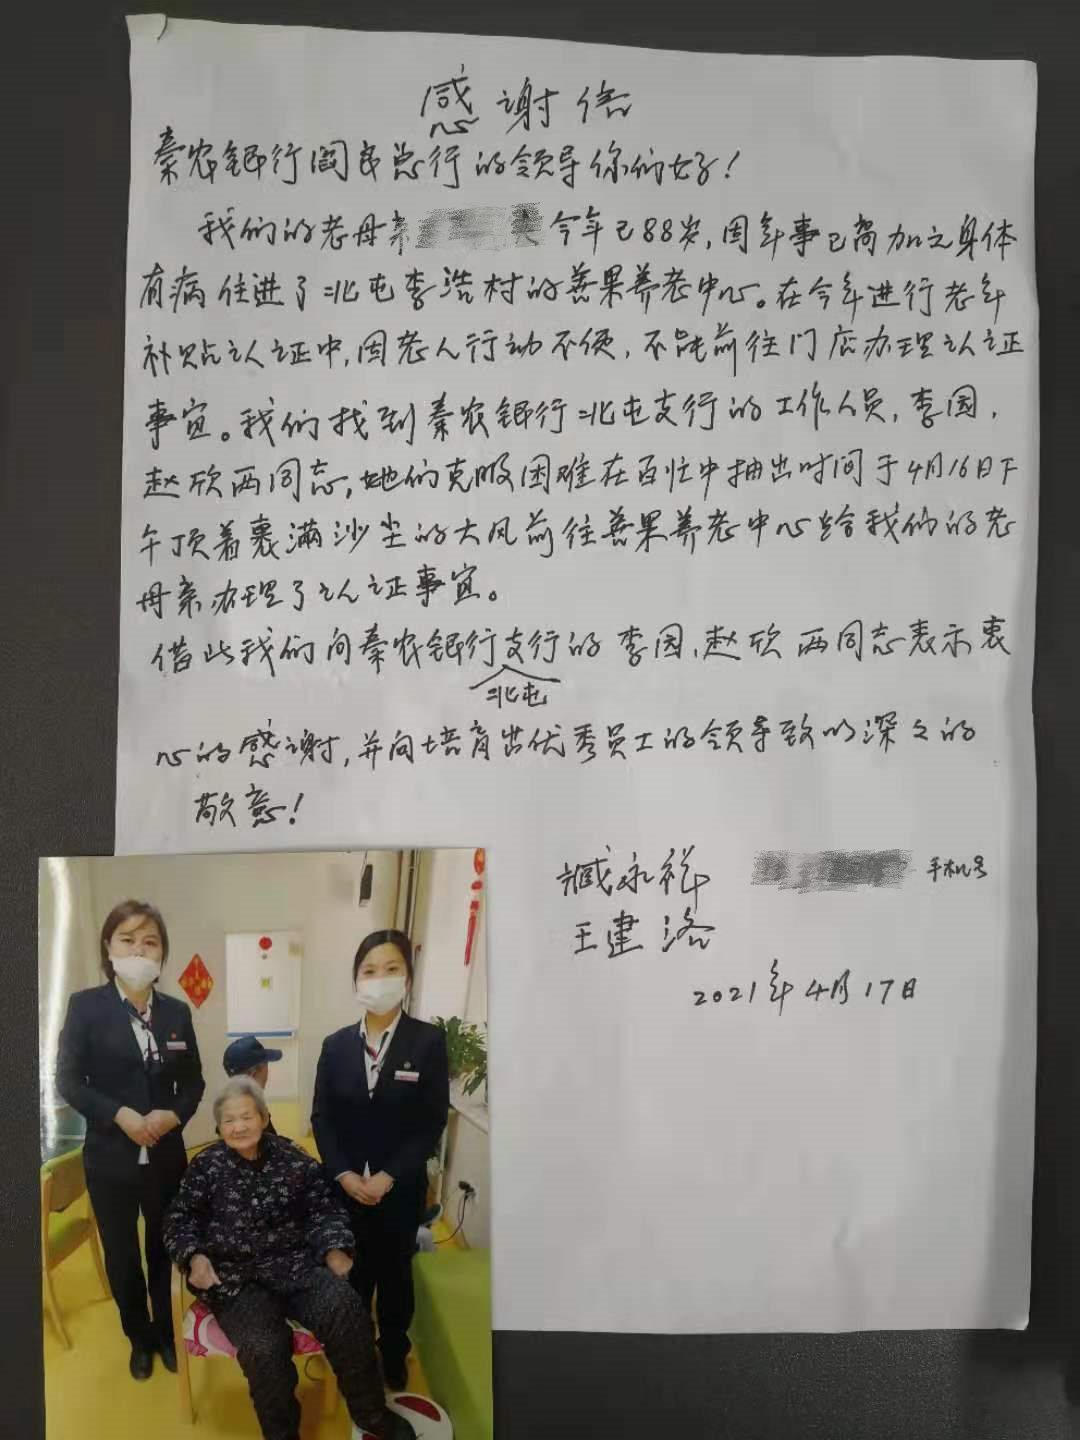 感谢信
秦农银行阎良总行的领导你们好!
我们的老母亲 今年已88岁,因年事已高加之身体
有病住进了北屯李浩村的善果养老中心。在今年进行老年
补贴认证中,因老人行动不便,不能前往门店办理认证
事宜。我们找到秦农银行北屯支行的工作人员,李园,
赵欣两同志,她们克服困难在百忙中抽出时间于4月16日下
午顶着裹满沙尘的大风前往善果养老中心给我们的老
母亲办理了认证事宜。
借此我们向秦农银行支行的李园,赵欣两同志表示衷
北屯
心的感谢,并向培育出优秀员工的领导致以深々的
敬意!
臧永祥 手机号
王建洛
2021年4月17日